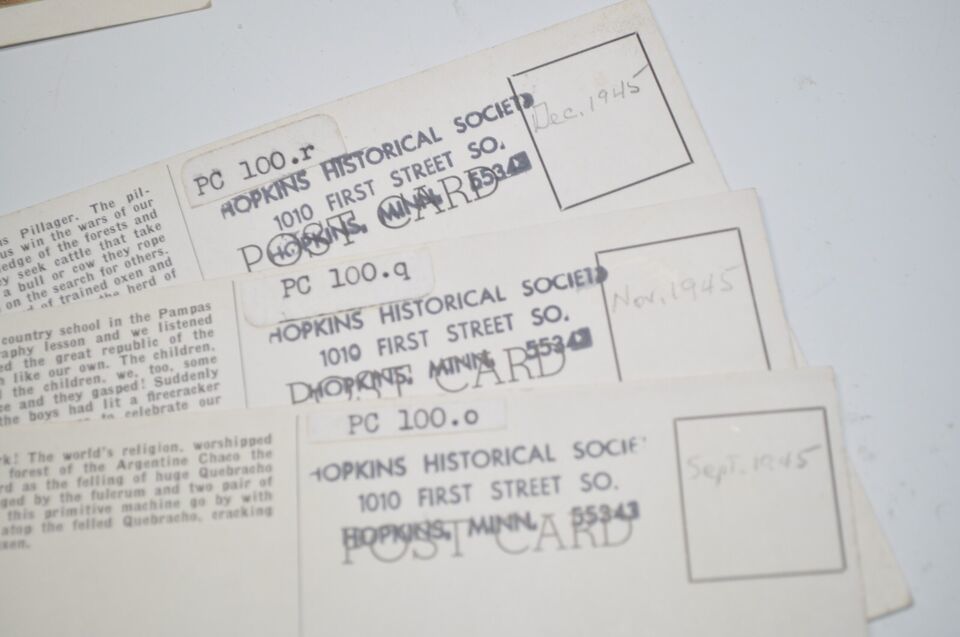 PC 100.r
HOPKINS HISTORICAL SOCIETY
1010 FIRST STREET SO.
HOPKINS, MINN. 55343
POST CARD
Dec. 1945
s Pillager. The pil-
us win the wars of our
edge of the forests and
y seek cattle that take
a bull or cow they rope
on the search for others.
of trained oxen and
the herd of
PC 100.q
HOPKINS HISTORICAL SOCIETY
1010 FIRST STREET SO.
HOPKINS, MINN. 55343
POST CARD
Nov. 1945
country school in the Pampas
aphy lesson and we listened
ed the great republic of the
like our own. The children,
the children, we, too, some
ce and they gasped! Suddenly
the boys had lit a firecracker
to celebrate our
PC 100.o
HOPKINS HISTORICAL SOCIE
1010 FIRST STREET SO.
HOPKINS, MINN. 55343
POST CARD
Sept. 1945
rk! The world's religion, worshipped
forest of the Argentine Chaco the
rd as the felling of huge Quebracho
ged by the fulcrum and two pair of
this primitive machine go by with
atop the felled Quebracho, cracking
xen.